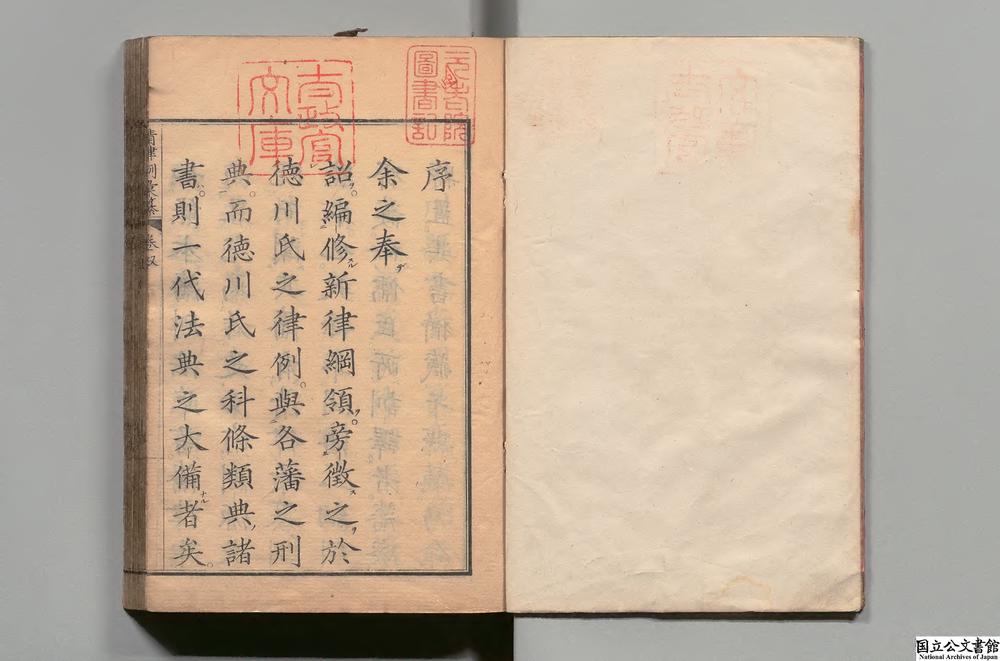 元老院
圖書記
太政官
文庫
序
余之奉
詔。編修新律綱領。旁徵之於
徳川氏之律例。與各藩之刑
典。而徳川氏之科條類典諸
書。則一代法典之大備者矣。
清律例彙纂
国立公文書館
National Archives of Japan